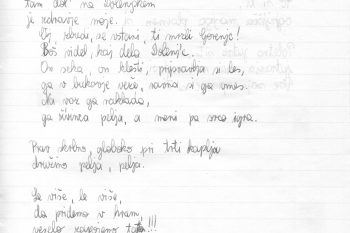 tam dol' na Gorenjskem
je zdravje moje.
Oj klinčki, se vstani, ti mrzli Gorenjc!
Boš videl, kaj dela Dolenjc.
On seka, on klesti, pripravlja si les,
ga v bukovje veže, ravna si ga vmes.
da voz ga naklada,
ga živinca pelja, a meni pa srce igra.
Prav skrbno, globoko pri trti kaplja
družino pelja, pelja.
Le više, le više,
da pridemo v hram,
veselo zapojemo tam!!!